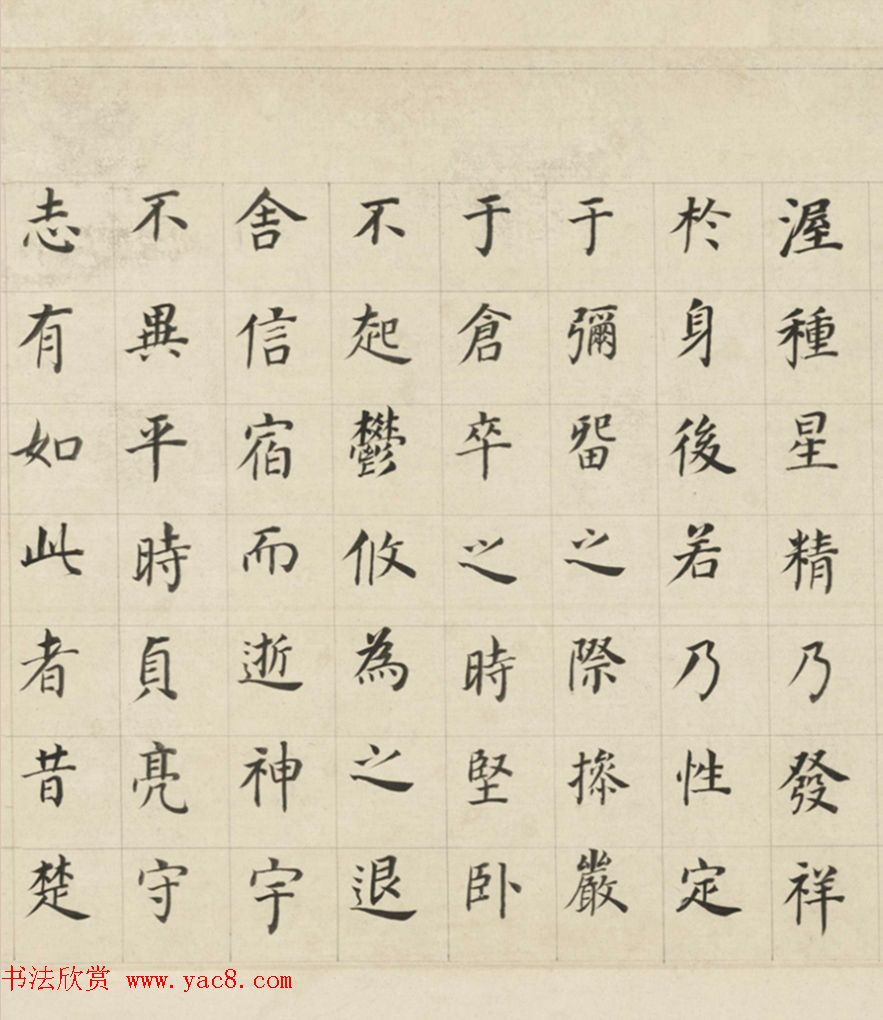 渥種星精乃發祥
於身後若乃性定
于彌留之際操嚴
于倉卒之時堅卧
不起鬱攸為之退
舍信宿而逝神宇
不異平時貞亮守
志有如此者昔楚
书法欣赏 www.yac8.com